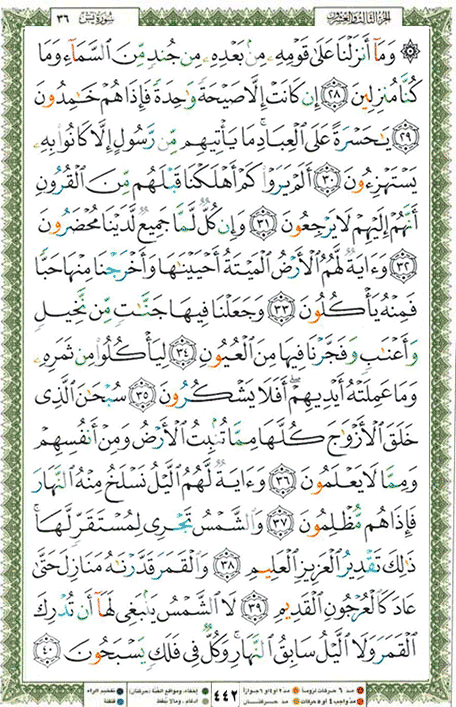 الجزء الثالث والعشرون
سورة يس ٣٦
۞ وَمَآ أَنزَلۡنَا عَلَىٰ قَوۡمِهِۦ مِنۢ بَعۡدِهِۦ مِن جُندٖ مِّنَ ٱلسَّمَآءِ وَمَا
كُنَّا مُنزِلِينَ ٢٨ إِن كَانَتۡ إِلَّا صَيۡحَةٗ وَٰحِدَةٗ فَإِذَا هُمۡ خَٰمِدُونَ
٢٩ يَٰحَسۡرَةً عَلَى ٱلۡعِبَادِۚ مَا يَأۡتِيهِم مِّن رَّسُولٍ إِلَّا كَانُواْ بِهِۦ
يَسۡتَهۡزِءُونَ ٣٠ أَلَمۡ يَرَوۡاْ كَمۡ أَهۡلَكۡنَا قَبۡلَهُم مِّنَ ٱلۡقُرُونِ
أَنَّهُمۡ إِلَيۡهِمۡ لَا يَرۡجِعُونَ ٣١ وَإِن كُلّٞ لَّمَّا جَمِيعٞ لَّدَيۡنَا مُحۡضَرُونَ
٣٢ وَءَايَةٞ لَّهُمُ ٱلۡأَرۡضُ ٱلۡمَيۡتَةُ أَحۡيَيۡنَٰهَا وَأَخۡرَجۡنَا مِنۡهَا حَبّٗا
فَمِنۡهُ يَأۡكُلُونَ ٣٣ وَجَعَلۡنَا فِيهَا جَنَّٰتٖ مِّن نَّخِيلٖ
وَأَعۡنَٰبٖ وَفَجَّرۡنَا فِيهَا مِنَ ٱلۡعُيُونِ ٣٤ لِيَأۡكُلُواْ مِن ثَمَرِهِۦ
وَمَا عَمِلَتۡهُ أَيۡدِيهِمۡۚ أَفَلَا يَشۡكُرُونَ ٣٥ سُبۡحَٰنَ ٱلَّذِي
خَلَقَ ٱلۡأَزۡوَٰجَ كُلَّهَا مِمَّا تُنۢبِتُ ٱلۡأَرۡضُ وَمِنۡ أَنفُسِهِمۡ
وَمِمَّا لَا يَعۡلَمُونَ ٣٦ وَءَايَةٞ لَّهُمُ ٱلَّيۡلُ نَسۡلَخُ مِنۡهُ ٱلنَّهَارَ
فَإِذَا هُم مُّظۡلِمُونَ ٣٧ وَٱلشَّمۡسُ تَجۡرِي لِمُسۡتَقَرّٖ لَّهَاۚ
ذَٰلِكَ تَقۡدِيرُ ٱلۡعَزِيزِ ٱلۡعَلِيمِ ٣٨ وَٱلۡقَمَرَ قَدَّرۡنَٰهُ مَنَازِلَ حَتَّىٰ
عَادَ كَٱلۡعُرۡجُونِ ٱلۡقَدِيمِ ٣٩ لَا ٱلشَّمۡسُ يَنۢبَغِي لَهَآ أَن تُدۡرِكَ
ٱلۡقَمَرَ وَلَا ٱلَّيۡلُ سَابِقُ ٱلنَّهَارِۚ وَكُلّٞ فِي فَلَكٖ يَسۡبَحُونَ ٤٠
مدّ ٦ حركات لزوماً
مدّ ٢ أو ٤ أو ٦ جوازاً
إخفاء، ومواقع الغُنَّة (حركتان)
تفخيم الراء
مدّ حركتان
إدغام، وما لا يُلفظ
قلقلة
٤٤٢